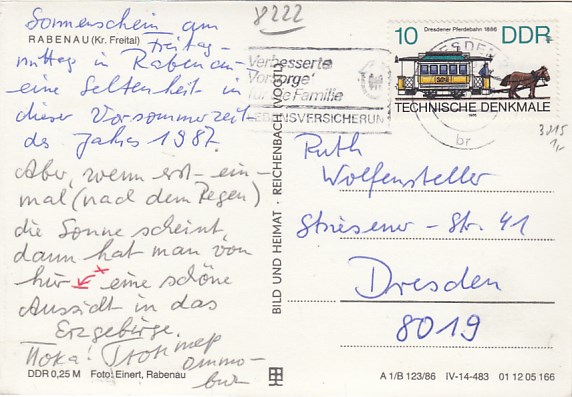 8222
Sonnenschein am
RABENAU (Kr. Freital)
Freitag-
mittag in Rabenau -
eine Seltenheit in
dieser Vorsommerzeit
des Jahres 1987.
Aber, wenn erst-ein-
mal (nach dem Regen)
die Sonne scheint,
dann hat man von
hier eine schöne
Aussicht in das
Erzgebirge.
Пока!
DDR 0,25 M Foto: Einert, Rabenau
BILD UND HEIMAT · REICHENBACH (VOGTL)
Verbesserte
Vorsorge
für die Familie
DRESDEN
br
Dresdener Pferdebahn 1886
10 DDR
TECHNISCHE DENKMALE
1986
3015
1,-
Ruth
Wolfensteller
Striesener-Str. 41
Dresden
8019
A 1/B 123/86 IV-14-483 01 12 05 166